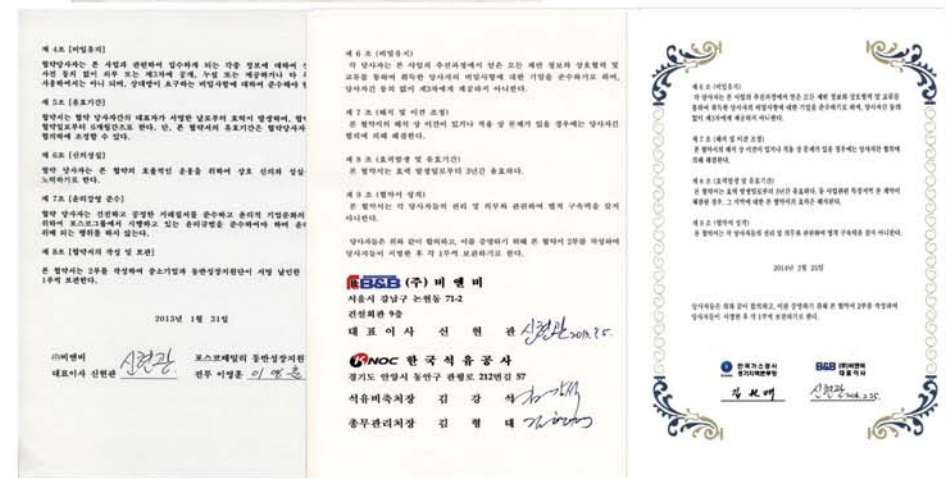 제 4조 [비밀유지]
협약당사자는 본 사업과 관련하여 입수하게 되는 각종 정보에 대하여
사전 동의 없이 외부 또는 제3자에 공개, 누설 또는 제공하거나 다
사용하여서는 아니 되며, 상대방이 요구하는 비밀사항에 대하여 준수해야
제 5조 [유효기간]
협약서는 협약 당사자간의 대표자가 서명한 날로부터 효력이 발생하며,
협약일로부터 6개월간으로 한다. 단, 본 협약서의 유효기간은 협약당사자
협의하에 조정할 수 있다.
제 6조 [신의성실]
협약 당사자는 본 협약의 효율적인 운용을 위하여 상호 신의와 성실
노력하기로 한다.
제 7조 [윤리강령 준수]
협약 당사자는 건전하고 공정한 거래질서를 준수하고 윤리적 기업문화의
위하여 포스코그룹에서 시행하고 있는 윤리규범을 준수하여야 하며
위배 되는 행위를 하지 않는다.
제 8조 [협약서의 작성 및 보관]
본 협약서는 2부를 작성하여 중소기업과 동반성장지원단이 서명 날인한
1부씩 보관한다.
2013년 1월 31일
㈜비엔비
대표이사 신현관 신현관
포스코패밀리 동반성장지원
전무 이영훈 이영훈
제 6 조 (비밀유지)
각 당사자는 본 사업의 추진과정에서 얻은 모든 제반 정보와 상호협력 및
교류를 통하여 취득한 당사자의 비밀사항에 대한 기밀을 준수하기로 하며,
당사자간 동의 없이 제3자에게 제공하지 아니한다.
제 7 조 (해석 및 이견 조정)
본 협약서의 해석 상 이견이 있거나 적용 상 문제가 있을 경우에는 당사자간
협의에 의해 해결한다.
제 8 조 (효력발생 및 유효기간)
본 협약서는 효력 발생일로부터 3년간 유효하다.
제 9 조 (협약이 성격)
본 협약서는 각 당사자들의 권리 및 의무와 관련하여 법적 구속력을 갖지
아니한다.
당사자들은 위와 같이 합의하고, 이를 증명하기 위해 본 협약서 2부를 작성하여
당사자들이 서명한 후 각 1부씩 보관하기로 한다.
B&B (주) 비 엔 비
서울시 강남구 논현동 71-2
건설회관 9층
대 표 이 사 신 현 관 신현관
KNOC 한 국 석 유 공 사
경기도 안양시 동안구 관평로 212번길 57
석유비축처장 김 강 석
총무관리처장 김 형 태
제 6 조 (비밀유지)
각 당사자는 본 사업의 추진과정에서 얻은 모든 제반 정보와 상호협력 및 교류를
통하여 취득한 당사자의 비밀사항에 대한 기밀을 준수하기로 하며, 당사자간 동의
없이 제3자에게 제공하지 아니한다.
제 7 조 (해석 및 이견 조정)
본 협약서의 해석 상 이견이 있거나 적용 상 문제가 있을 경우에는 당사자간 협의에
의해 해결한다.
제 8 조 (효력발생 및 유효기간)
본 협약서는 효력 발생일로부터 3년간 유효하다. 동 사업관련 특정지역 본 계약이
체결된 경우, 그 지역에 대한 본 협약의 효력은 해지된다.
제 9 조 (협약이 성격)
본 협약서는 각 당사자들의 권리 및 의무와 관련하여 법적 구속력을 갖지 아니한다.
2014년 2월 25일
당사자들은 위와 같이 합의하고, 이를 증명하기 위해 본 협약서 2부를 작성하여
당사자들이 서명한 후 각 1부씩 보관하기로 한다.
한국가스공사
경기지역본부장
B&B (주)비엔비
대 표 이 사
신현관 2014.2.25.